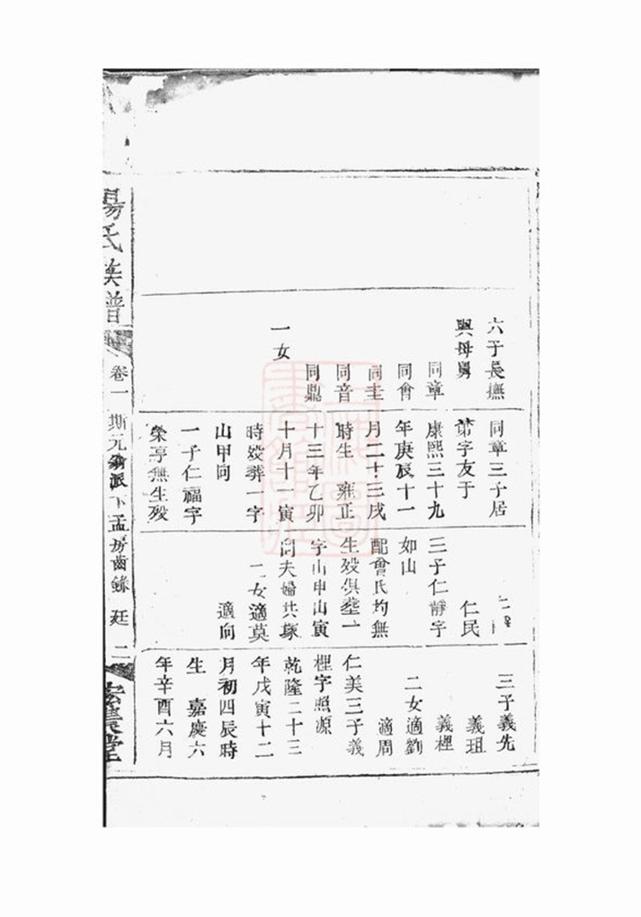 楊氏族譜
卷一
斯元
派下孟房齒錄
廷
二
六子長撫
與母舅
同章
同會
同圭
同音
同鼎
一女
同章三子居
第字友于
康熙三十九
年庚辰十一
月二十三戌
時生 雍正
十三年乙卯
十月十一寅
時歿葬一字
山甲向
一子仁福字
榮亨無生歿
仁民
三子仁靜字
如山
配會氏均無
生歿俱塟一
字山申山寅
向夫婦共塚
二女適莫
適向
三子義先
義珇
義梩
二女適劉
適周
仁美三子義
梩字照源
乾隆二十三
年戊寅十二
月初四辰時
生 嘉慶六
年辛酉六月